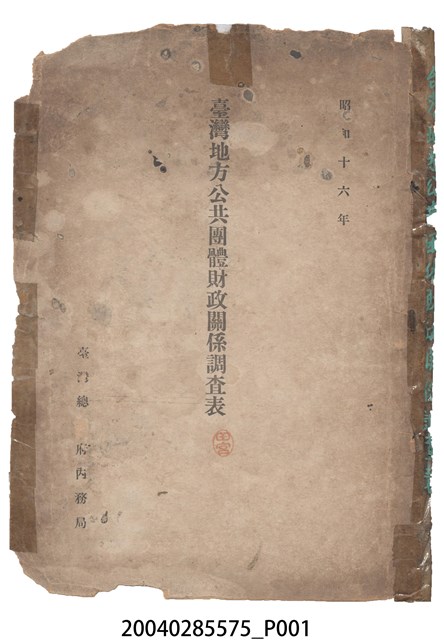 昭和十六年
臺灣地方公共團體財政關係調査表
臺灣總 府內務局
20040285575_P001